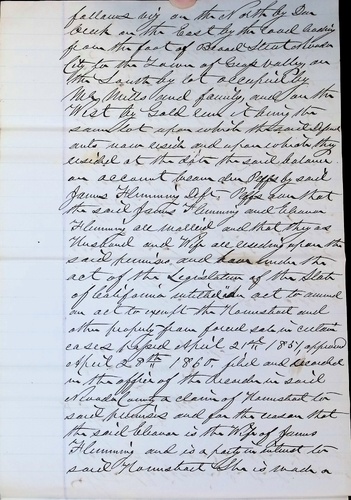 follows viz on the North by Deer
Creek on the East by the road leading
from the foot of Broad Street Nevada
City to the Town of Grass Valley, on
the South by lot occupied by
Mr. Mills and family, and on the
West by Gold run it being the
same lot upon which the said Defend
ants now reside and upon which they
resided at the date the said balance
on account became due Plffs by said
James Flemming Deft. Plffs aver that
the said James Flemming and Eleanor
Flemming are married and that they as
Husband and Wife are residing upon the
said premises and have under the
act of the Legislature of the State
of California entitled "an act to amend
an act to exempt the Homestead and
other property from forced sale in certain
cases passed April 21st 1851 approved
April 28th 1860. filed and recorded
in the office of the Recorder in said
Nevada County a claim of Homestead to
said premises and for the reason that
the said Eleanor is the Wife of James
Flemming and is a party in interest to
said Homestead She is made a